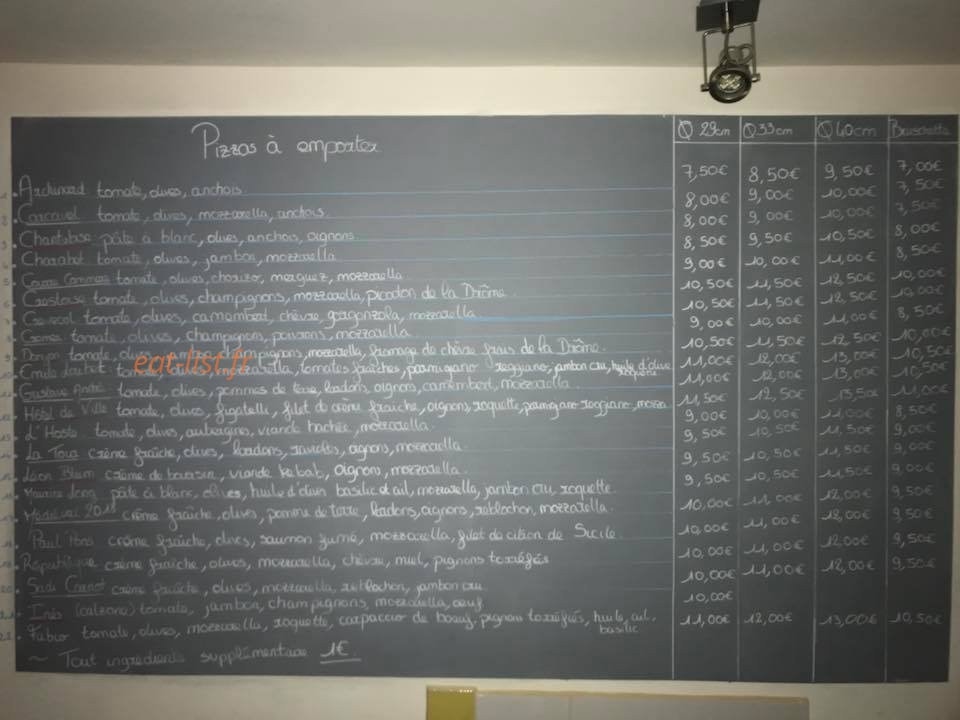 Pizzas à emporter Ø 29cm Ø 33cm Ø 40cm Bruschetta
tomate, olives, anchois 7,50€ 8,50€ 9,50€ 7,00€
Carcavel tomate, olives, mozzarella, anchois 8,00€ 9,00€ 10,00€ 7,50€
pâte à blanc, olives, anchois, oignons 8,00€ 9,00€ 10,00€ 7,50€
Charabot tomate, olives, jambon, mozzarella 8,50€ 9,50€ 10,50€ 8,00€
tomate, olives, chorizo, merguez, mozzarella 9,00€ 10,00€ 11,00€ 8,50€
tomate, olives, champignons, mozzarella, picodon de la Drôme 10,50€ 11,50€ 12,50€ 10,00€
tomate, olives, camembert, chèvre, gorgonzola, mozzarella 10,50€ 11,50€ 12,50€ 10,00€
tomate, olives, champignons, poivrons, mozzarella 9,00€ 10,00€ 11,00€ 8,50€
tomate, champignons, mozzarella, fromage de chèvre frais de la Drôme 10,50€ 11,50€ 12,50€ 10,00€
Emile Loubet mozzarella, tomates fraîches, parmigiano reggiano, jambon cru, huile d'olive 11,00€ 12,00€ 13,00€ 10,50€
roquette
Gustave André tomate, olives, pommes de terre, lardons, oignons, camembert, mozzarella 11,00€ 12,00€ 13,00€ 10,50€
Hôtel de Ville tomate, olives, figatelli, filet de crème fraîche, oignons, roquette, parmigiano reggiano, mozza 11,50€ 12,50€ 13,50€ 11,00€
L'Hoste tomate, olives, aubergines, viande hachée, mozzarella 9,00€ 10,00€ 11,00€ 8,50€
La Tour crème fraîche, olives, lardons, ravioles, oignons, mozzarella 9,50€ 10,50€ 11,50€ 9,00€
Léon Blum crème de boursin, viande kebab, oignons, mozzarella 9,50€ 10,50€ 11,50€ 9,00€
Maurice Long pâte à blanc, olives, huile d'olive basilic et ail, mozzarella, jambon cru, roquette 9,50€ 10,50€ 11,50€ 9,00€
Médiéval 2018 crème fraîche, olives, pomme de terre, lardons, oignons, reblochon, mozzarella 10,00€ 11,00€ 12,00€ 9,50€
Paul Pons crème fraîche, olives, saumon fumé, mozzarella, filet de citron de Sicile 10,00€ 11,00€ 12,00€ 9,50€
République crème fraîche, olives, mozzarella, chèvre, miel, pignons torréfiés 10,00€ 11,00€ 12,00€ 9,50€
Sadi Carnot crème fraîche, olives, mozzarella, reblochon, jambon cru 10,00€ 11,00€ 12,00€ 9,50€
Inès (calzone) tomate, jambon, champignons, mozzarella, oeuf 10,00€
Fabio tomate, olives, mozzarella, roquette, carpaccio de boeuf, pignons torréfiés, huile, ail, 11,00€ 12,00€ 13,00€ 10,50€
basilic
~ Tout ingrédients supplémentaire 1€
eat-list.fr